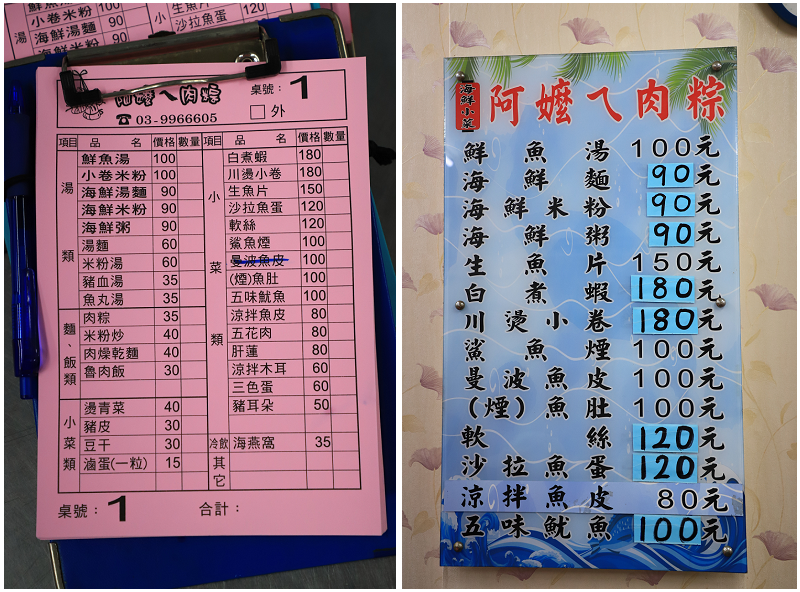 湯
小卷米粉 90
海鮮湯麵 90
海鮮米粉 90
生魚片 150
沙拉魚蛋 120
阿嬤ㄟ肉粽
桌號：1
☎ 03-9966605
□ 外
項目 品名 價格 數量 項目 品名 價格 數量
湯類
鮮魚湯 100
小卷米粉 100
海鮮湯麵 90
海鮮米粉 90
海鮮粥 90
湯麵 60
米粉湯 60
豬血湯 35
魚丸湯 35
麵、飯類
肉粽 35
米粉炒 40
肉燥乾麵 40
魯肉飯 30
小菜類
燙青菜 40
豬皮 30
豆干 30
滷蛋(一粒) 15
小菜類
白煮蝦 180
川燙小卷 180
生魚片 150
沙拉魚蛋 120
軟絲 120
鯊魚煙 100
曼波魚皮 100
(煙)魚肚 100
五味魷魚 100
涼拌魚皮 80
五花肉 80
肝蓮 80
涼拌木耳 60
三色蛋 60
豬耳朵 50
冷飲 海燕窩 35
其它
桌號：1 合計：
海鮮小菜
阿嬤ㄟ肉粽
鮮魚湯 100元
海鮮麵 90元
海鮮米粉 90元
海鮮粥 90元
生魚片 150元
白煮蝦 180元
川燙小卷 180元
鯊魚煙 100元
曼波魚皮 100元
(煙)魚肚 100元
軟絲 120元
沙拉魚蛋 120元
涼拌魚皮 80元
五味魷魚 100元